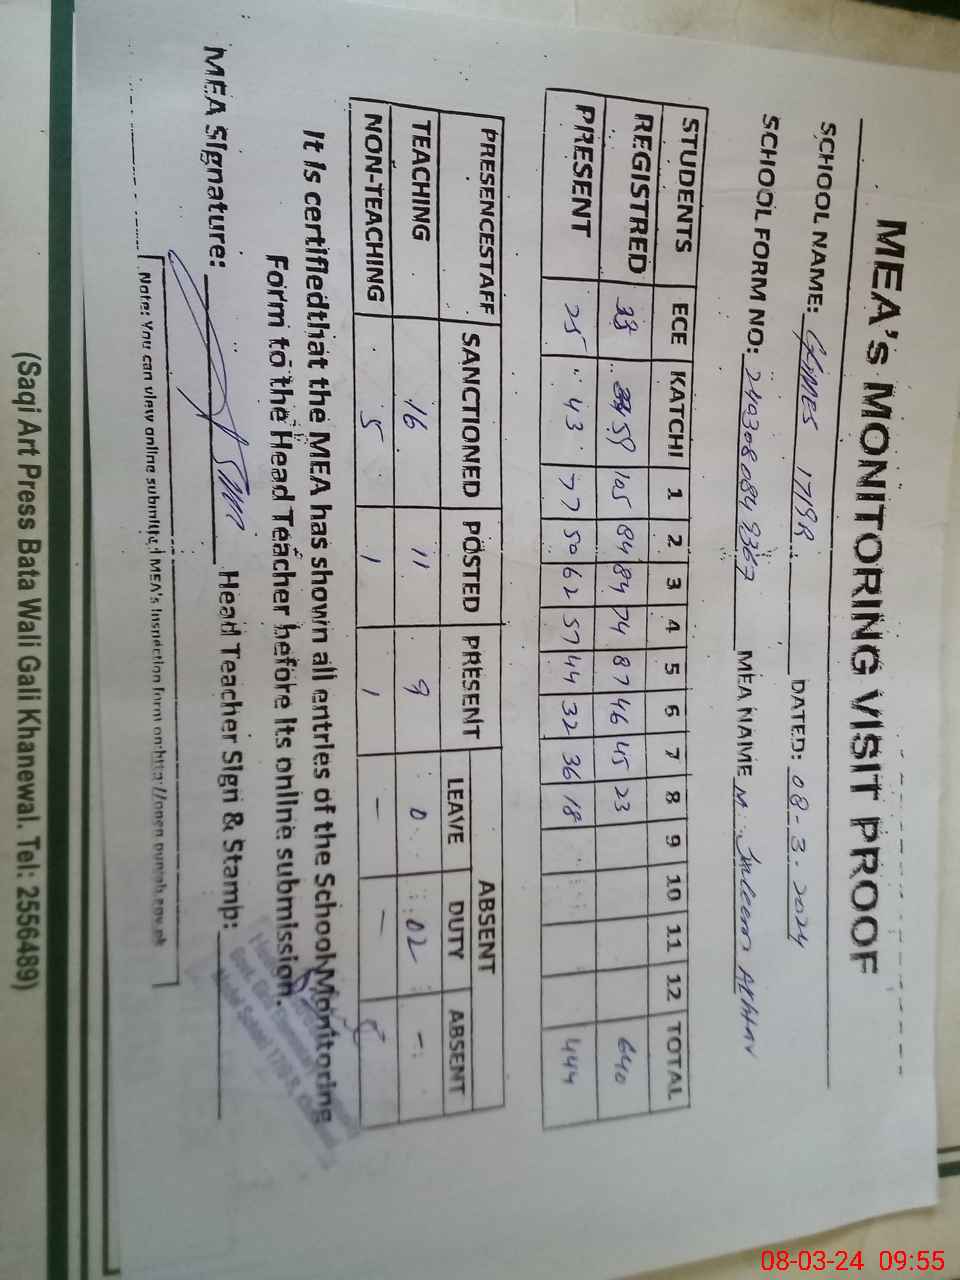 MEA's MONITORING VISIT PROOF
SCHOOL NAME: GGMES 1719R DATED: 08-3-2024
SCHOOL FORM NO: MEA NAME M. AKHTAR
STUDENTS ECE KATCHI 1 2 3 4 5 6 7 8 9 10 11 12 TOTAL
REGISTRED 33 59 105 84 84 74 87 46 45 23 640
PRESENT 25 43 77 50 62 57 44 32 36 18 444
PRESENCESTAFF SANCTIONED POSTED PRESENT ABSENT
LEAVE DUTY ABSENT
TEACHING 16 11 9 0 02 -
NON-TEACHING 5 1 1 - -
It is certifiedthat the MEA has shown all entries of the School Monitoring
Form to the Head Teacher before its online submission.
MEA Signature: Head Teacher Sign & Stamb:
Note: You can view online submitted MEA's Inspection form on:http://open.punjab.gov.pk
(Saqi Art Press Bata Wali Gali Khanewal. Tel: 2556489)
08-03-24 09:55